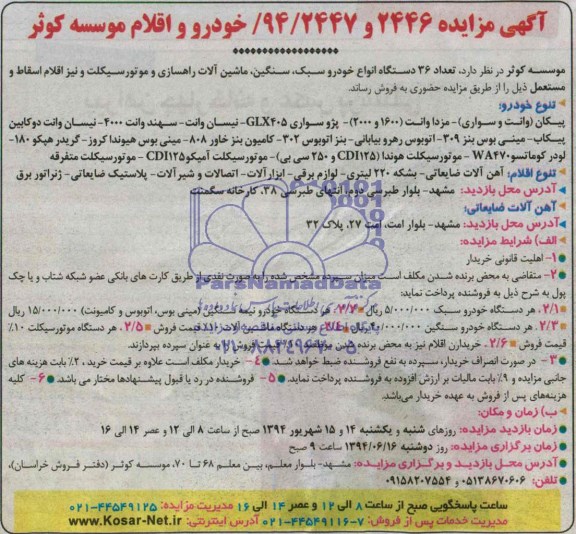 آگهی مزایده ۲۴۴۶ و ۹۴/۲۴۴۷/ خودرو و اقلام موسسه کوثر
موسسه کوثر در نظر دارد، تعداد ۳۶ دستگاه انواع خودرو سبک، سنگین، ماشین آلات راهسازی و موتورسیکلت و نیز اقلام اسقاط و
مستعمل ذیل را از طریق مزایده حضوری به فروش رساند.
تنوع خودرو:
پیکان (وانت و سواری)- مزدا وانت (۱۶۰۰ و ۲۰۰۰)- پژو سواری GLX۴۰۵- نیسان وانت- سهند وانت ۴۰۰۰- نیسان وانت دوکابین
پیکاب- مینی بوس بنز ۳۰۹- اتوبوس رهرو بیابانی- بنز اتوبوس ۳۰۲- کامیون بنز خاور ۸۰۸- مینی بوس هیوندا کروز- گریدر هپکو ۱۸۰-
لودر کوماتسو WA۴۷۰- موتورسیکلت هوندا (CDI۱۲۵ و ۲۵۰ سی سی)- موتورسیکلت آمیکو CDI۱۲۵- موتورسیکلت متفرقه
تنوع اقلام: آهن آلات ضایعاتی- بشکه ۲۲۰ لیتری- لوازم برقی- ابزارآلات- اتصالات و شیرآلات- پلاستیک ضایعاتی- ژنراتور برق
آدرس محل بازدید: مشهد- بلوار طبرسی دوم، انتهای طبرسی ۳۸، کارخانه سگمنت
آهن آلات ضایعاتی:
آدرس محل بازدید: مشهد- بلوار امت، امت ۲۷، پلاک ۳۲
الف) شرایط مزایده:
۱- اهلیت قانونی خریدار
۲- متقاضی به محض برنده شدن مکلف است میزان سپرده مشخص شده را به صورت نقدی از طریق کارت های بانکی عضو شبکه شتاب و یا چک
پول به شرح ذیل به فروشنده پرداخت نماید:
۲/۱- هر دستگاه خودرو سبک ۵/۰۰۰/۰۰۰ ریال ۲/۲- هر دستگاه خودرو نیمه سنگین (مینی بوس، اتوبوس و کامیونت) ۱۵/۰۰۰/۰۰۰ ریال
۲/۳- هر دستگاه خودرو سنگین ۰۰۰/۰۰۰ ریال هر دستگاه ماشین آلات قیمت فروش ۲/۵- هر دستگاه موتورسیکلت ۱۰٪
قیمت فروش ۲/۶- خریداران اقلام نیز به محض برنده شدن قیمت فروش را به عنوان سپرده بپردازند.
۳- در صورت انصراف خریدار، سپرده به نفع فروشنده ضبط خواهد شد. ۴- خریدار مکلف است علاوه بر قیمت خرید، ۲٪ بابت هزینه های
جانبی مزایده و ۹٪ بابت مالیات بر ارزش افزوده به فروشنده پرداخت نماید. ۵- فروشنده در رد یا قبول پیشنهادها مختار می باشد. ۶- کلیه
هزینه‌های پس از فروش به عهده خریدار می‌باشد.
ب) زمان و مکان:
زمان بازدید مزایده: روزهای شنبه و یکشنبه ۱۴ و ۱۵ شهریور ۱۳۹۴ صبح از ساعت ۸ الی ۱۲ و عصر ۱۴ الی ۱۶
زمان برگزاری مزایده: روز دوشنبه ۱۳۹۴/۰۶/۱۶ ساعت ۹ صبح
آدرس محل بازدید و برگزاری مزایده: مشهد- بلوار معلم، بین معلم ۶۸ تا ۷۰، موسسه کوثر (دفتر فروش خراسان)،
تلفن: ۰۵۱۳۸۶۷۰۶۰۶ و ۰۹۱۵۸۲۰۷۵۵۴
ساعت پاسخگویی صبح از ساعت ۸ الی ۱۲ و عصر ۱۴ الی ۱۶ مدیریت مزایده: ۴۴۵۴۹۱۲۵-۰۲۱
مدیریت خدمات پس از فروش: ۷-۴۴۵۴۹۱۱۶-۰۲۱ آدرس اینترنتی: www.Kosar-Net.ir
ParsNamadData